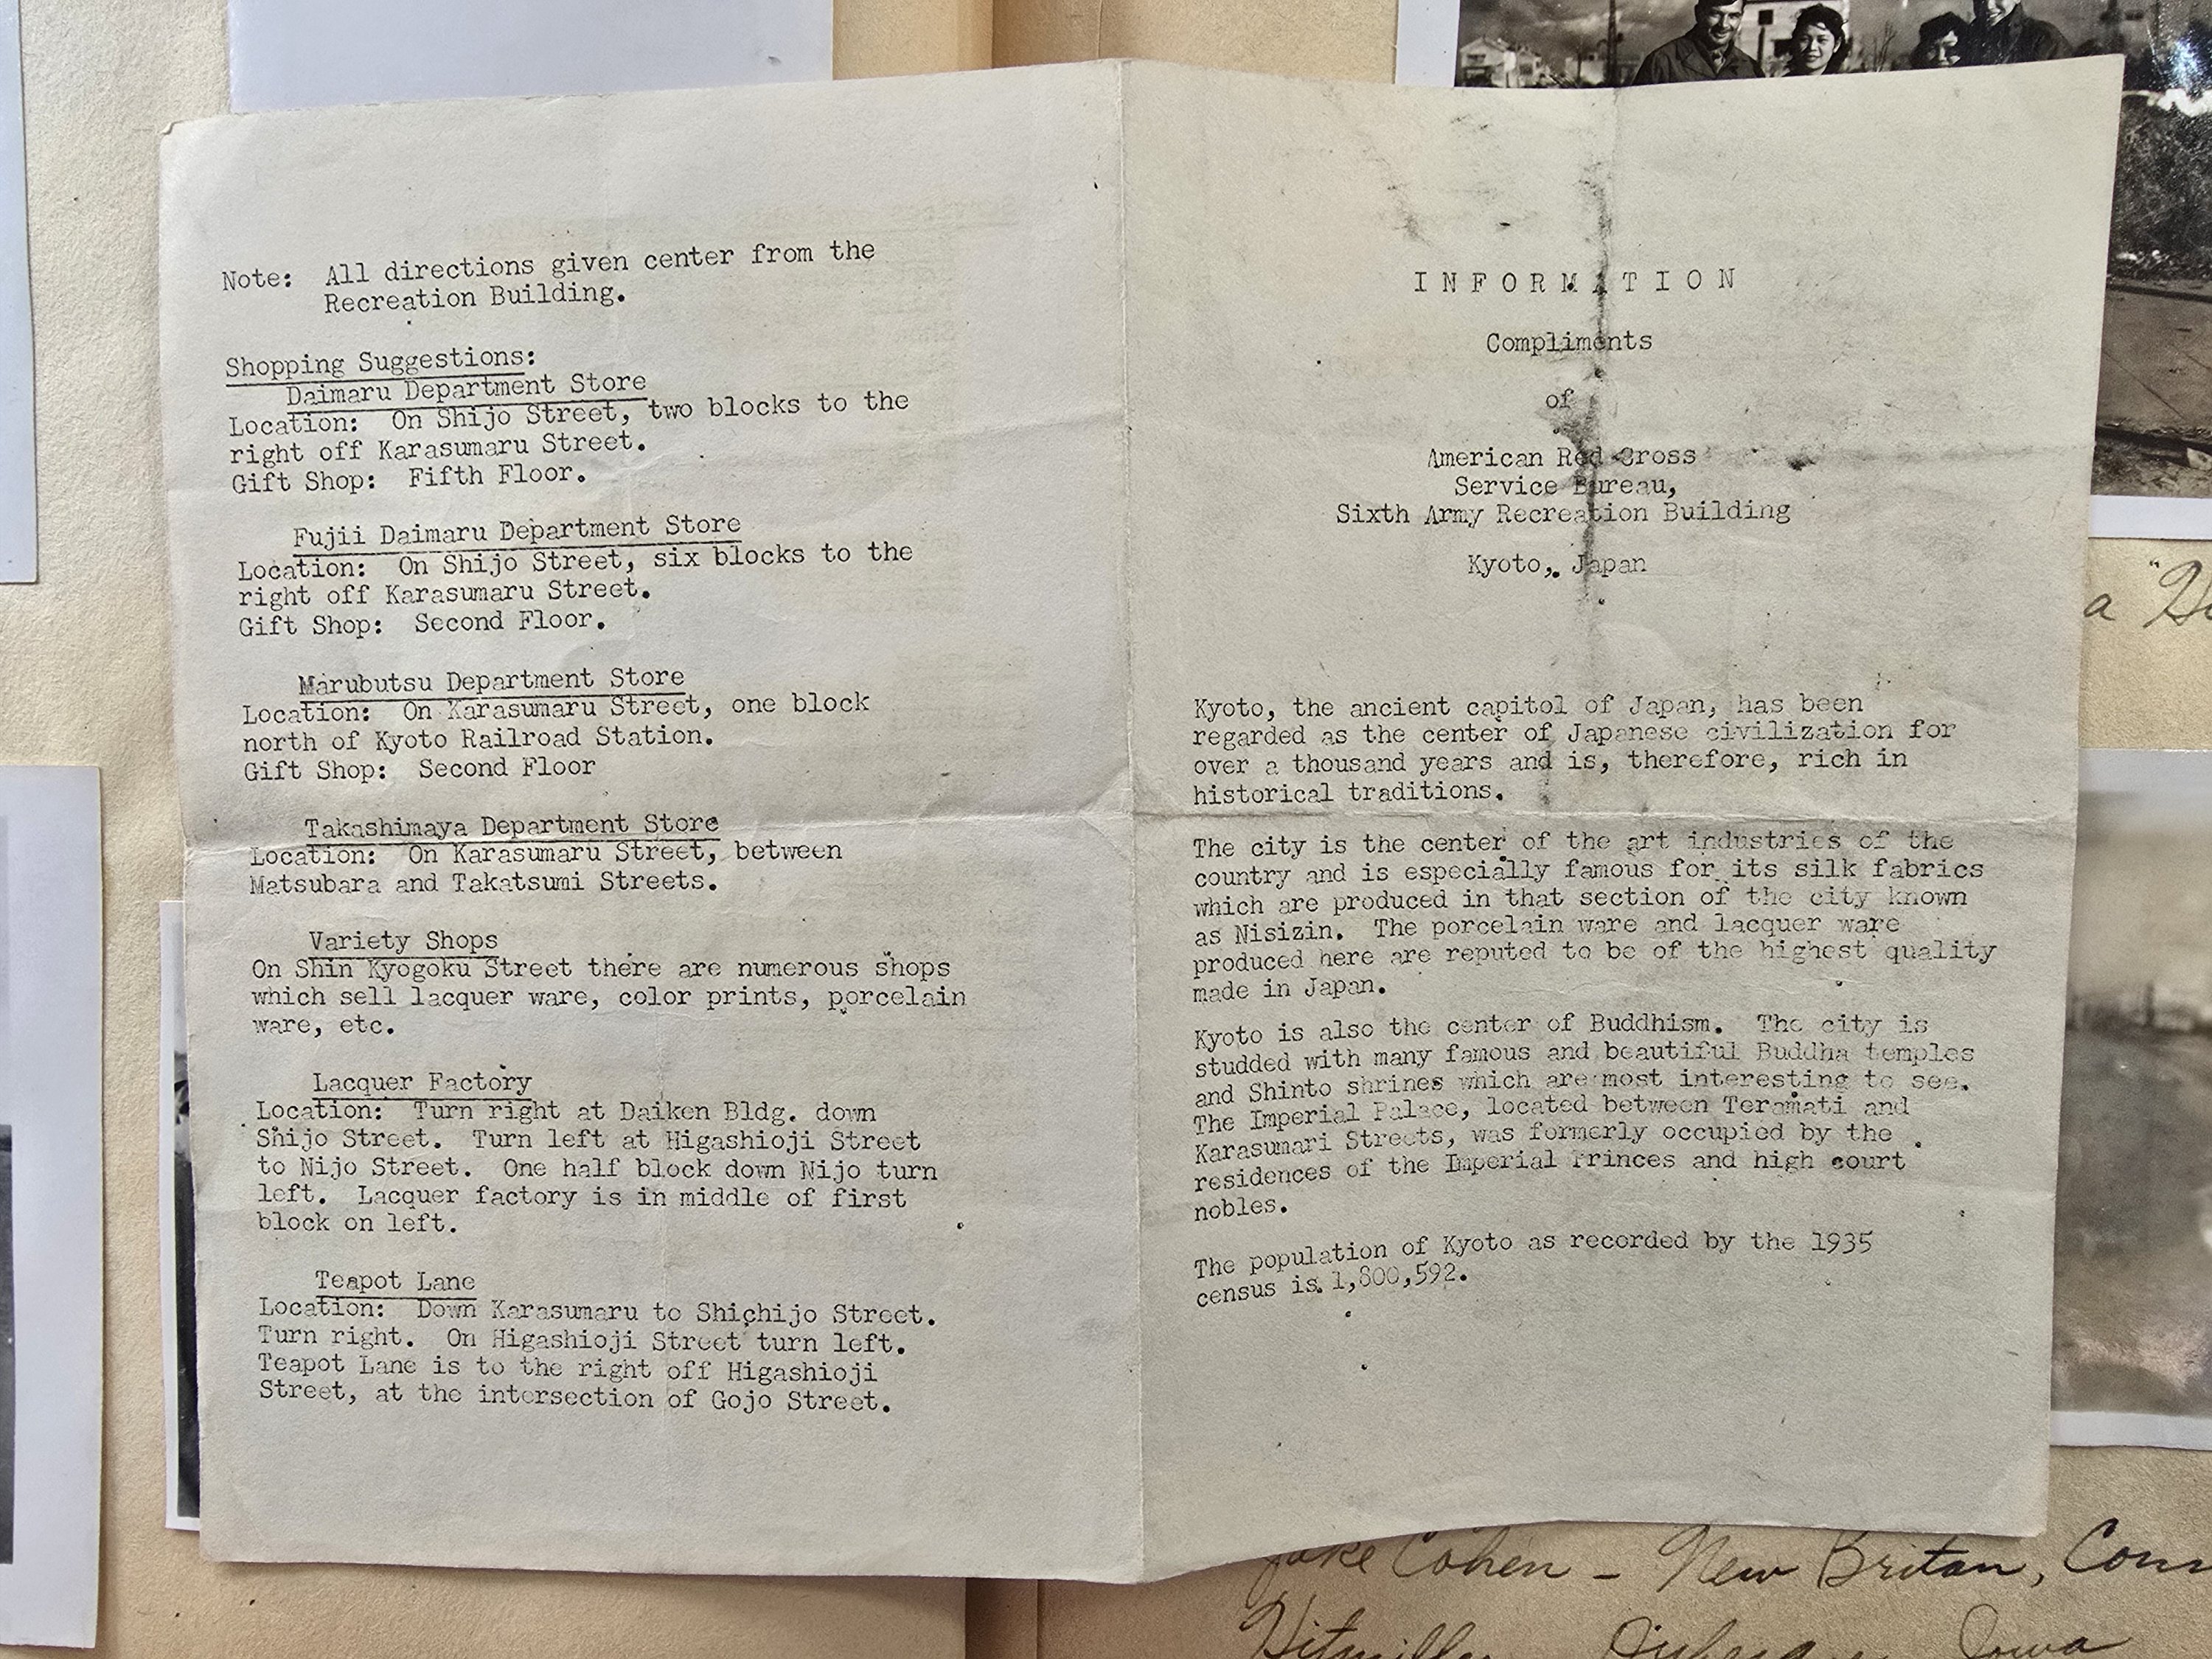 Note: All directions given center from the
Recreation Building.
Shopping Suggestions:
Daimaru Department Store
Location: On Shijo Street, two blocks to the
right off Karasumaru Street.
Gift Shop: Fifth Floor.
Fujii Daimaru Department Store
Location: On Shijo Street, six blocks to the
right off Karasumaru Street.
Gift Shop: Second Floor.
Marubutsu Department Store
Location: On Karasumaru Street, one block
north of Kyoto Railroad Station.
Gift Shop: Second Floor
Takashimaya Department Store
Location: On Karasumaru Street, between
Matsubara and Takatsumi Streets.
Variety Shops
On Shin Kyogoku Street there are numerous shops
which sell lacquer ware, color prints, porcelain
ware, etc.
Lacquer Factory
Location: Turn right at Daiken Bldg. down
Shijo Street. Turn left at Higashioji Street
to Nijo Street. One half block down Nijo turn
left. Lacquer factory is in middle of first
block on left.
Teapot Lane
Location: Down Karasumaru to Shichijo Street.
Turn right. On Higashioji Street turn left.
Teapot Lane is to the right off Higashioji
Street, at the intersection of Gojo Street.
INFORMATION
Compliments
of
American Red Cross
Service Bureau,
Sixth Army Recreation Building
Kyoto, Japan
Kyoto, the ancient capitol of Japan, has been
regarded as the center of Japanese civilization for
over a thousand years and is, therefore, rich in
historical traditions.
The city is the center of the art industries of the
country and is especially famous for its silk fabrics
which are produced in that section of the city known
as Nisizin. The porcelain ware and lacquer ware
produced here are reputed to be of the highest quality
made in Japan.
Kyoto is also the center of Buddhism. The city is
studded with many famous and beautiful Buddha temples
and Shinto shrines which are most interesting to see.
The Imperial Palace, located between Teramati and
Karasumari Streets, was formerly occupied by the
residences of the Imperial Princes and high court
nobles.
The population of Kyoto as recorded by the 1935
census is 1,800,592.
a
Jake Cohen - New Britan, Conn
Iowa